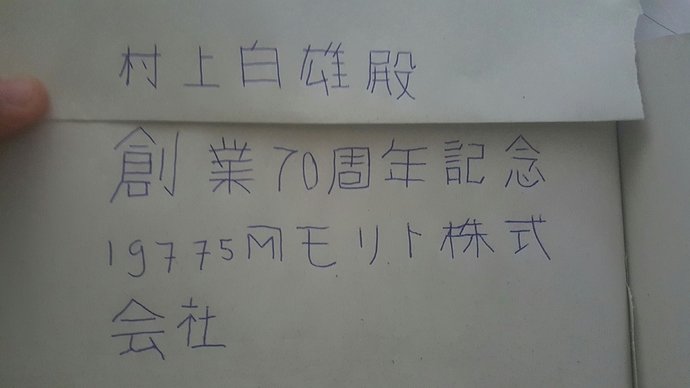 村上白雄殿
創業70周年記念
19775M モリト株式
会社